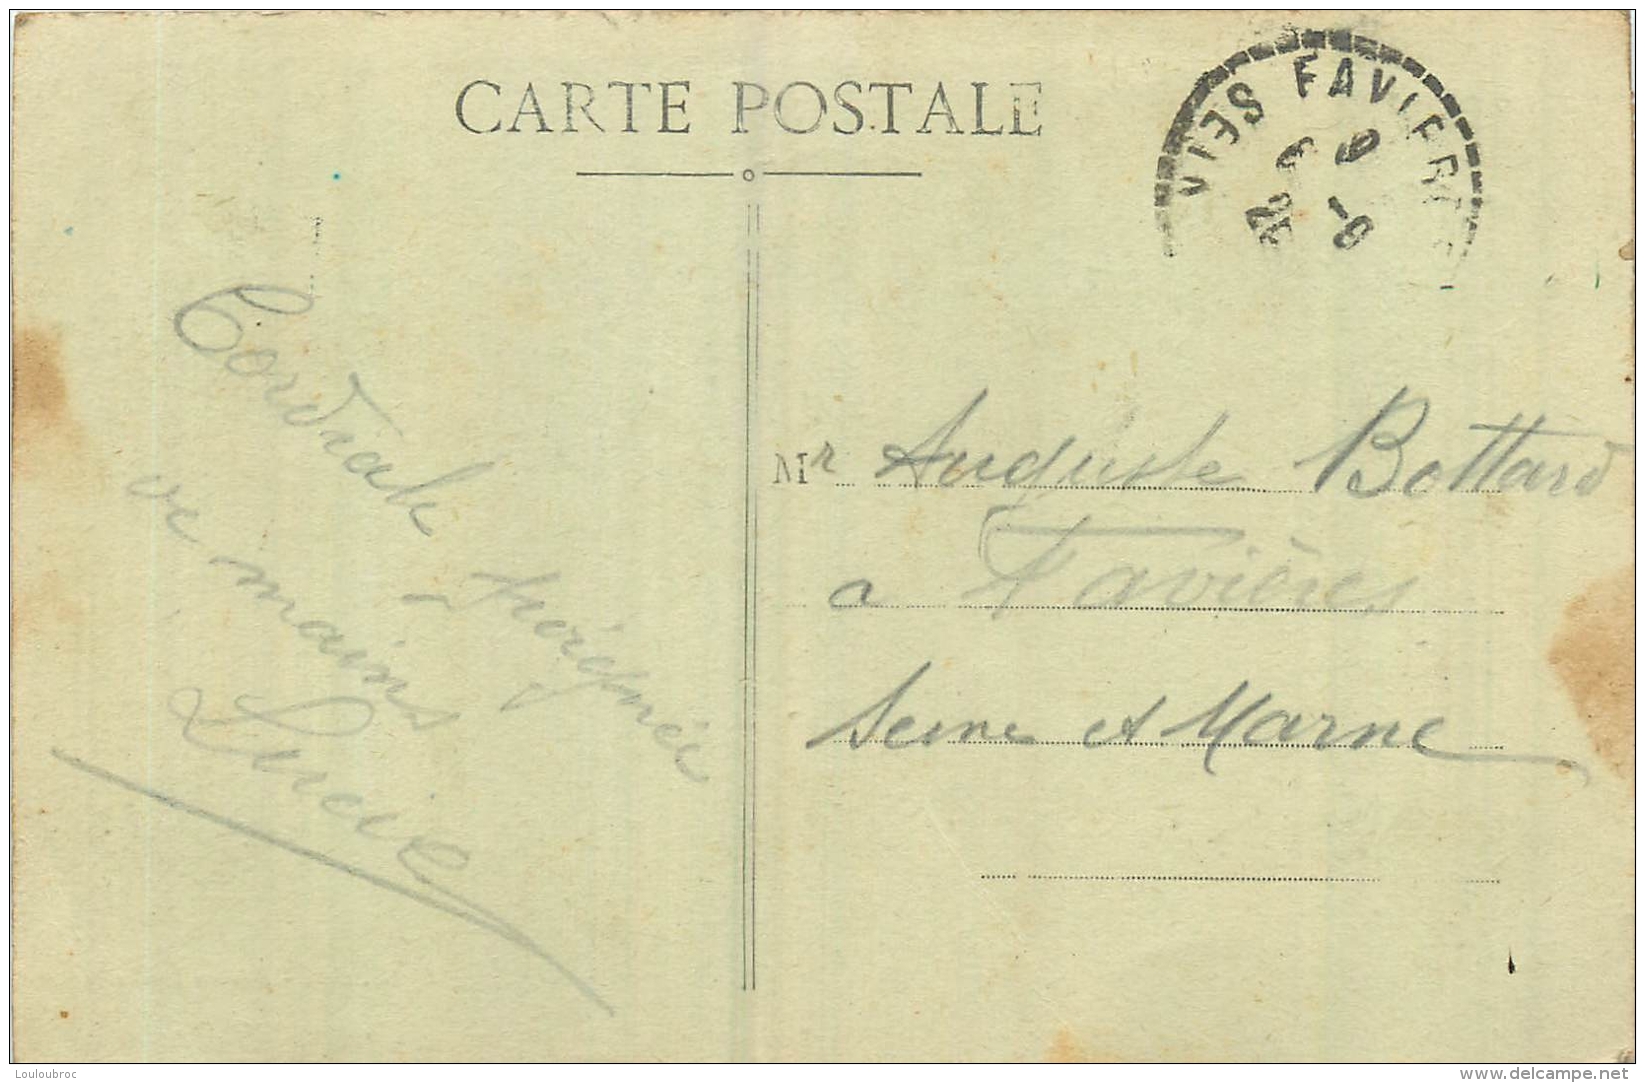 CARTE POSTALE
FAVIERES
Cordiale poignée
de mains
Lucie
Mr Auguste Bottard
a Favières
Seine et Marne
Louloubroc
www.delcampe.net